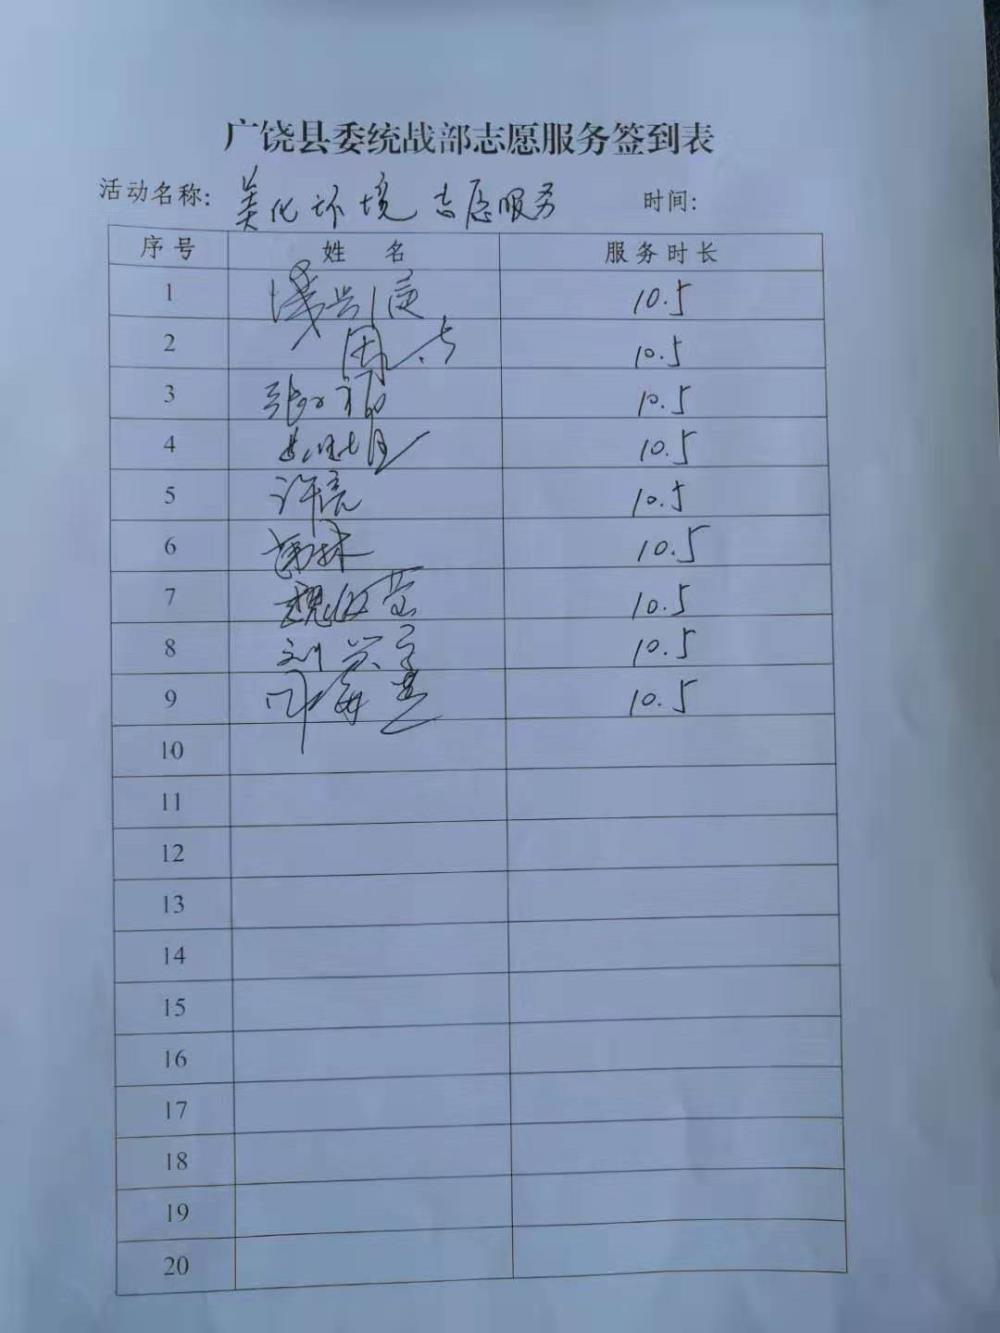 广饶县委统战部志愿服务签到表
活动名称: 美化环境志愿服务 时间:
序号 姓名 服务时长
1 10.5
2 10.5
3 10.5
4 10.5
5 许亮 10.5
6 10.5
7 10.5
8 刘 10.5
9 10.5
10
11
12
13
14
15
16
17
18
19
20